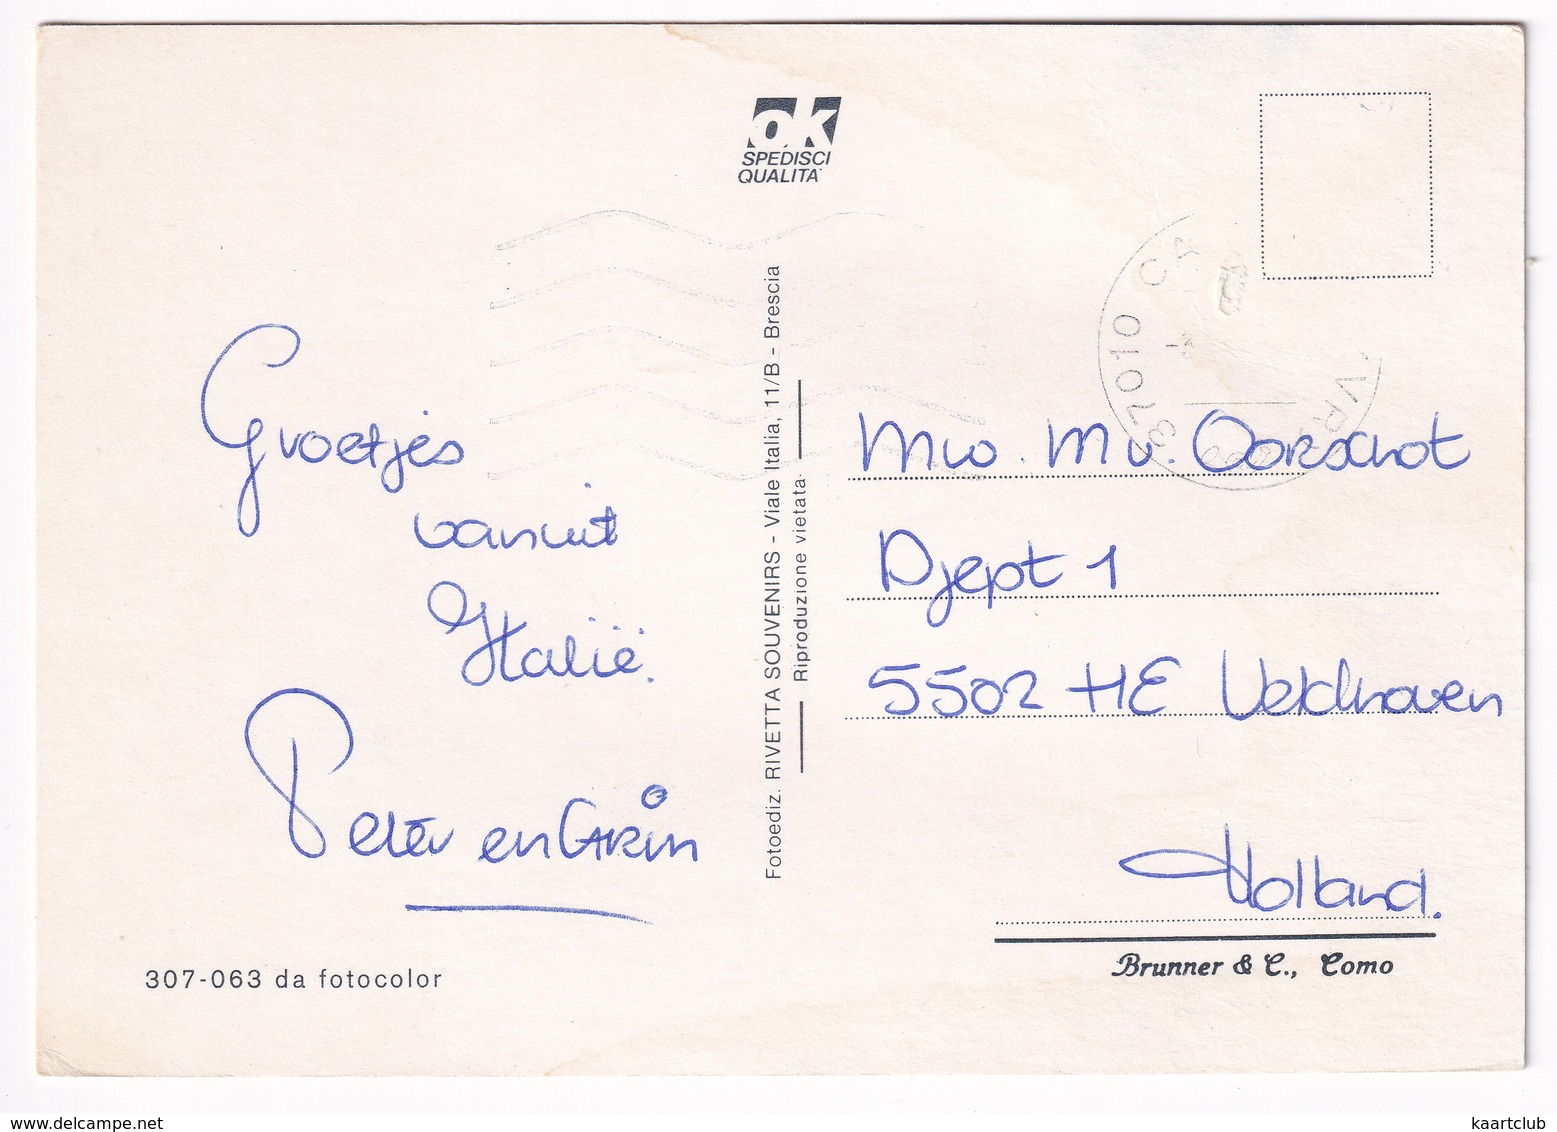 ok
SPEDISCI
QUALITA'
37010 CA
VR
Groetjes
vanuit
Italië.
Peter en Carin
307-063 da fotocolor
Fotoediz. RIVETTA SOUVENIRS - Viale Italia, 11/B - Brescia
Riproduzione vietata
Mw. Mv. Oorschot
Djept 1
5502 HE Veldhoven
Holland.
Brunner & C., Como
www.delcampe.net
kaartclub